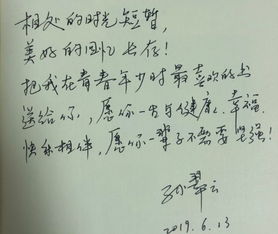 相处的时光短暂,
美好的回忆长存!
把我在青青年少时最喜欢的书
送给你,愿你一生与健康、幸福、
快乐相伴,愿你一辈子不需要坚强!
翠云
2019.6.13